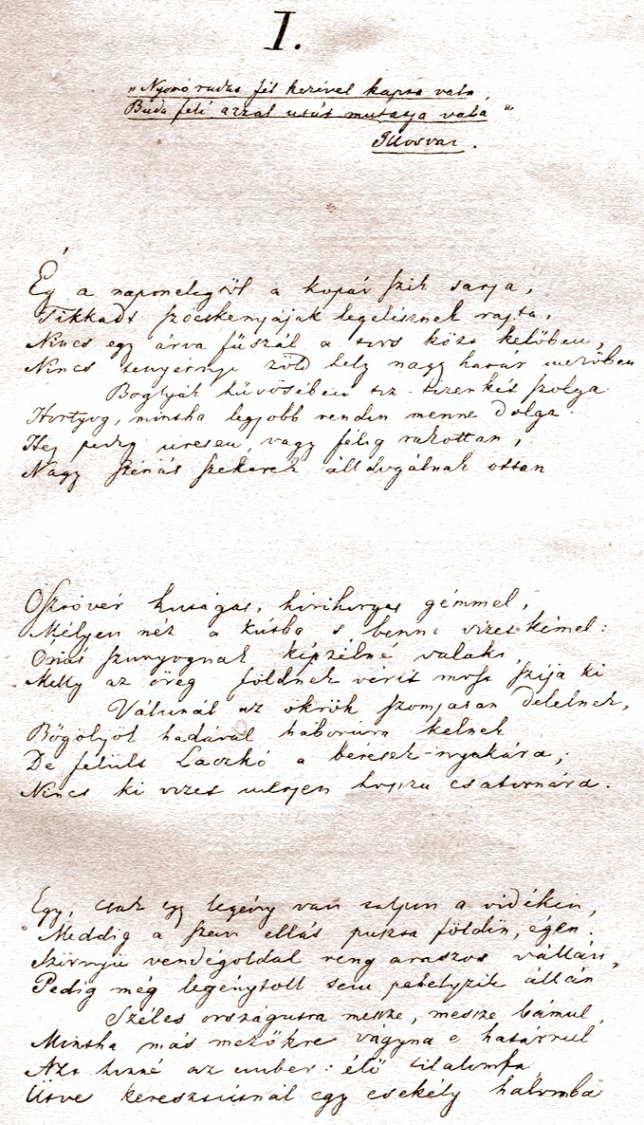 I.
„Nyomó rudas fél kezével kapta vala,
Buda felé azzal utát mutatja vala"
Ilosvai.
Ég a napmelegtől a kopár szik sarja,
Tikkadt szöcskenyájak legelésznek rajta,
Nincs egy árva fűszál a tors közt kelőben,
Nincs tenyérnyi zöld hely nagy határ mezőben
Boglyák hüvösében tiz-tizenkét szolga
Hortyog, mintha legjobb rendin menne dolga
Hej pedig üresen, vagy félig rakottan,
Nagy szénás szekerek álldogálnak ottan
Ösztövér kutágas, hórihorgas gémmel,
Mélyen néz a kútba s benne vizet kémel:
Óriás szunyognak képzelné valaki,
Melly az öreg földnek vérit most szija ki
Válunál az ökrök szomjasan delelnek,
Bőgölyök hadával háborúra kelnek
De felült Laczkó a béresek nyakára,
Nincs ki vizet merjen hosszu csatornára.
Egy, csak egy legény van talpon a vidéken,
Meddig a szem ellát puszta földön, égen.
Szörnyü vendégoldal reng araszos vállán,
Pedig még legénytoll sem pehelyzik állán
Széles országutra messze, messze bámul,
Mintha más mezőkre vágyna e határrul
Azt hinné az ember: élő tilalomfa,
Ütve keresztútnál egy csekély halomba